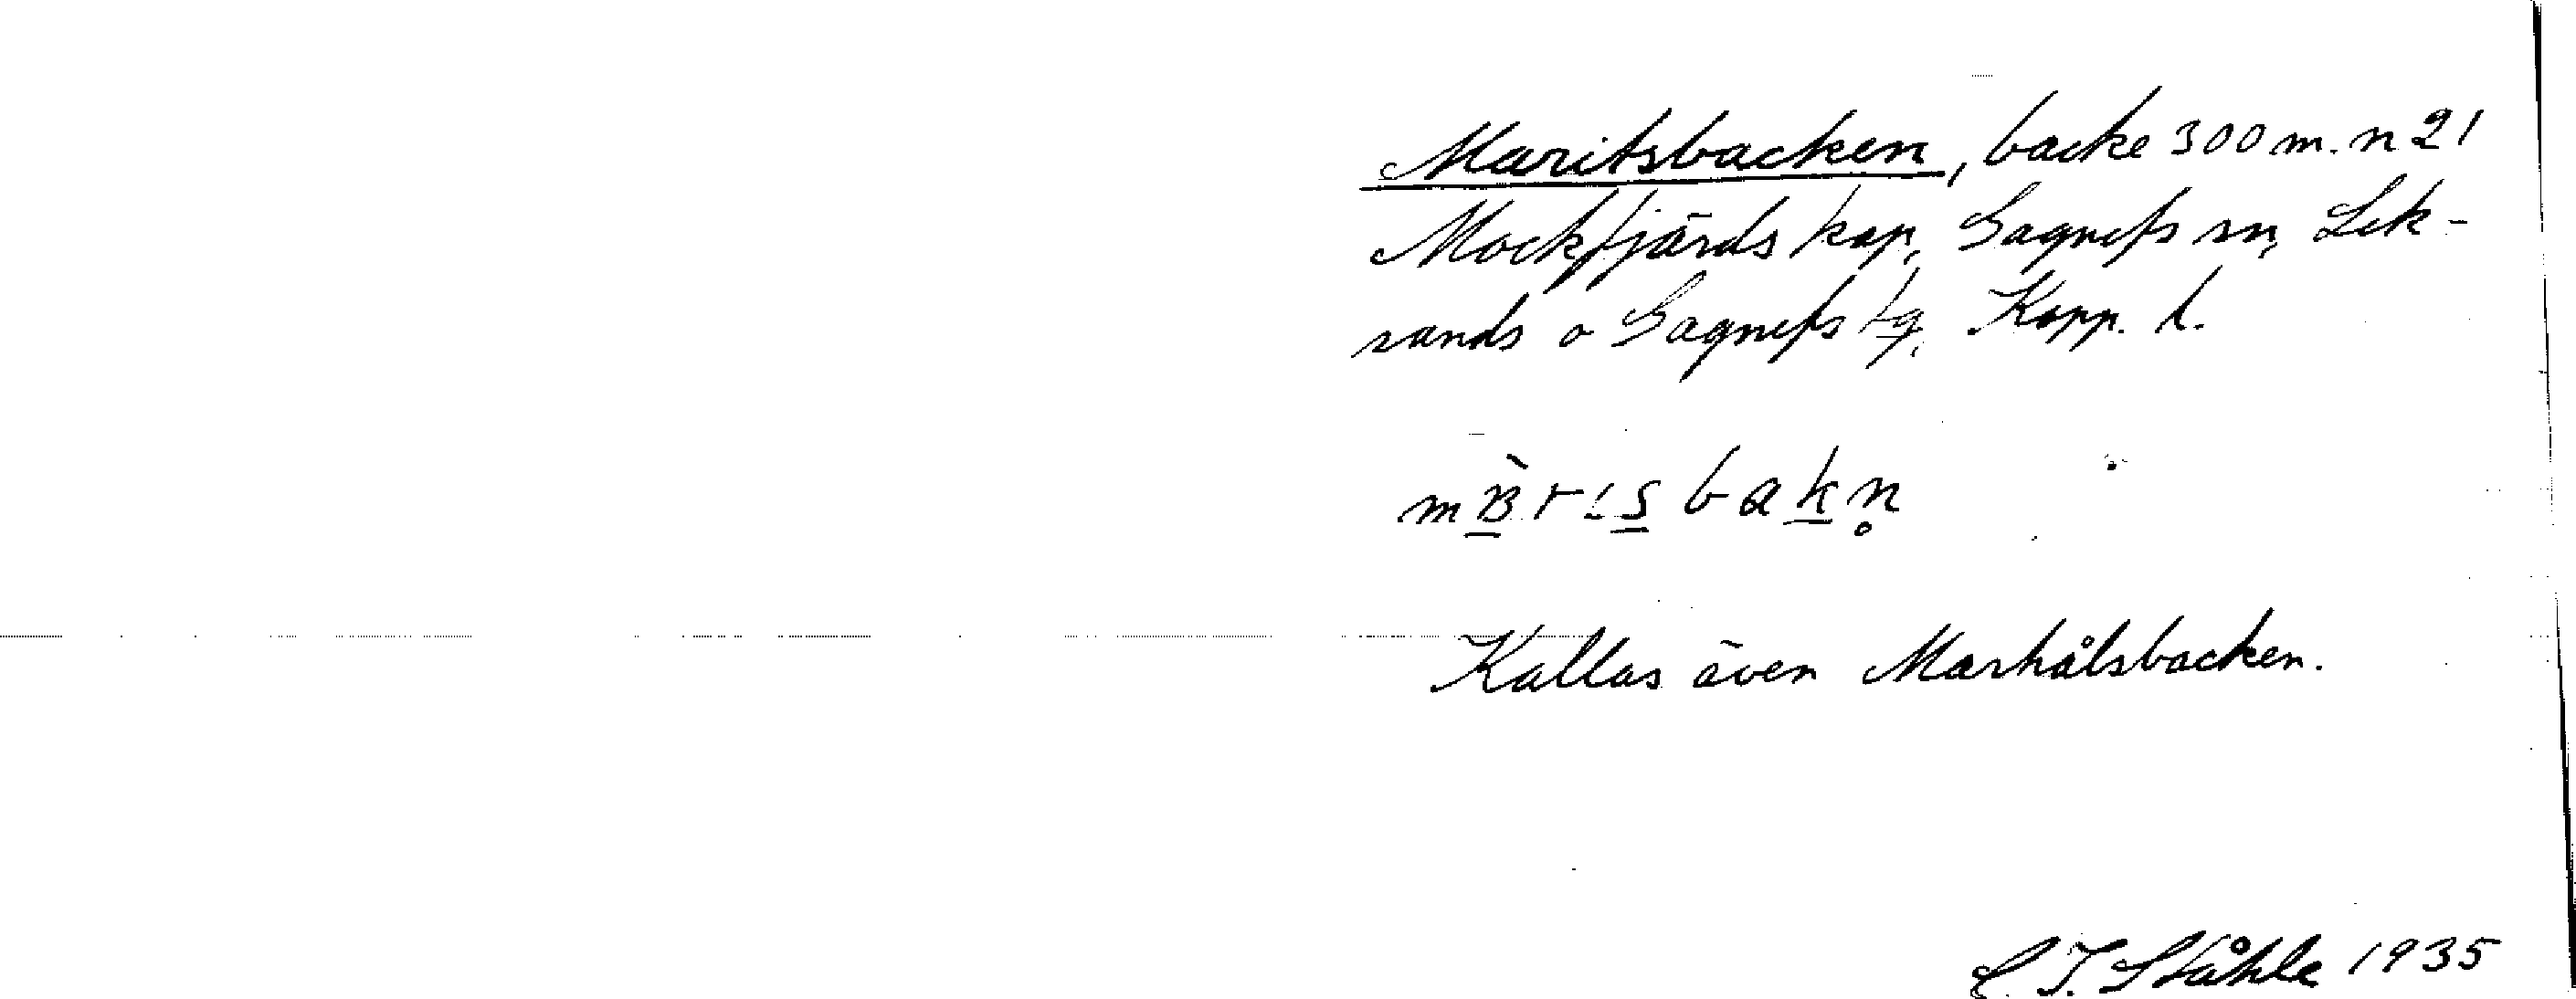 Maritsbacken, backe 300 m. n 21
Mockfjärds kap, Gagnefs sn, Lek-
sands o Gagnefs tg, Kopp. l.
mB̀rısbakn̥
Kallas även Marhålsbacken.
C. I. Ståhle 1935